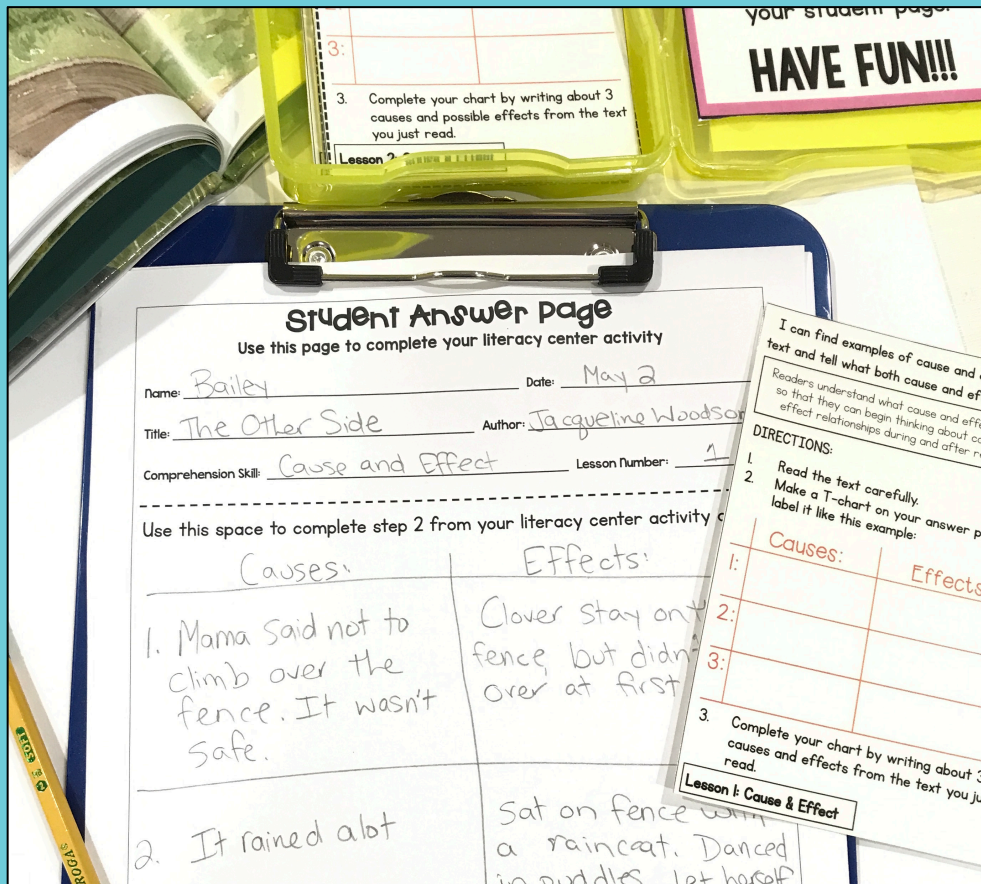 your student page.
HAVE FUN!!!
3:
3. Complete your chart by writing about 3
causes and possible effects from the text
you just read.
Lesson 2:
Student Answer Page
Use this page to complete your literacy center activity
Name: Bailey Date: May 2
Title: The Other Side Author: Jacqueline Woodson
Comprehension Skill: Cause and Effect Lesson Number: 1
Use this space to complete step 2 from your literacy center activity
Causes: Effects:
1. Mama said not to
climb over the
fence. It wasn't
safe.
Clover stay on
fence, but didn
over at first
2. It rained alot
Sat on fence with
a raincoat. Danced
in puddles, let herself
I can find examples of cause and
text and tell what both cause and
Readers understand what cause and
so that they can begin thinking about
effect relationships during and after
DIRECTIONS:
1. Read the text carefully.
2. Make a T-chart on your answer
label it like this example:
Causes: Effects
1:
2:
3:
3. Complete your chart by writing about 3
causes and effects from the text you
read.
Lesson 1: Cause & Effect